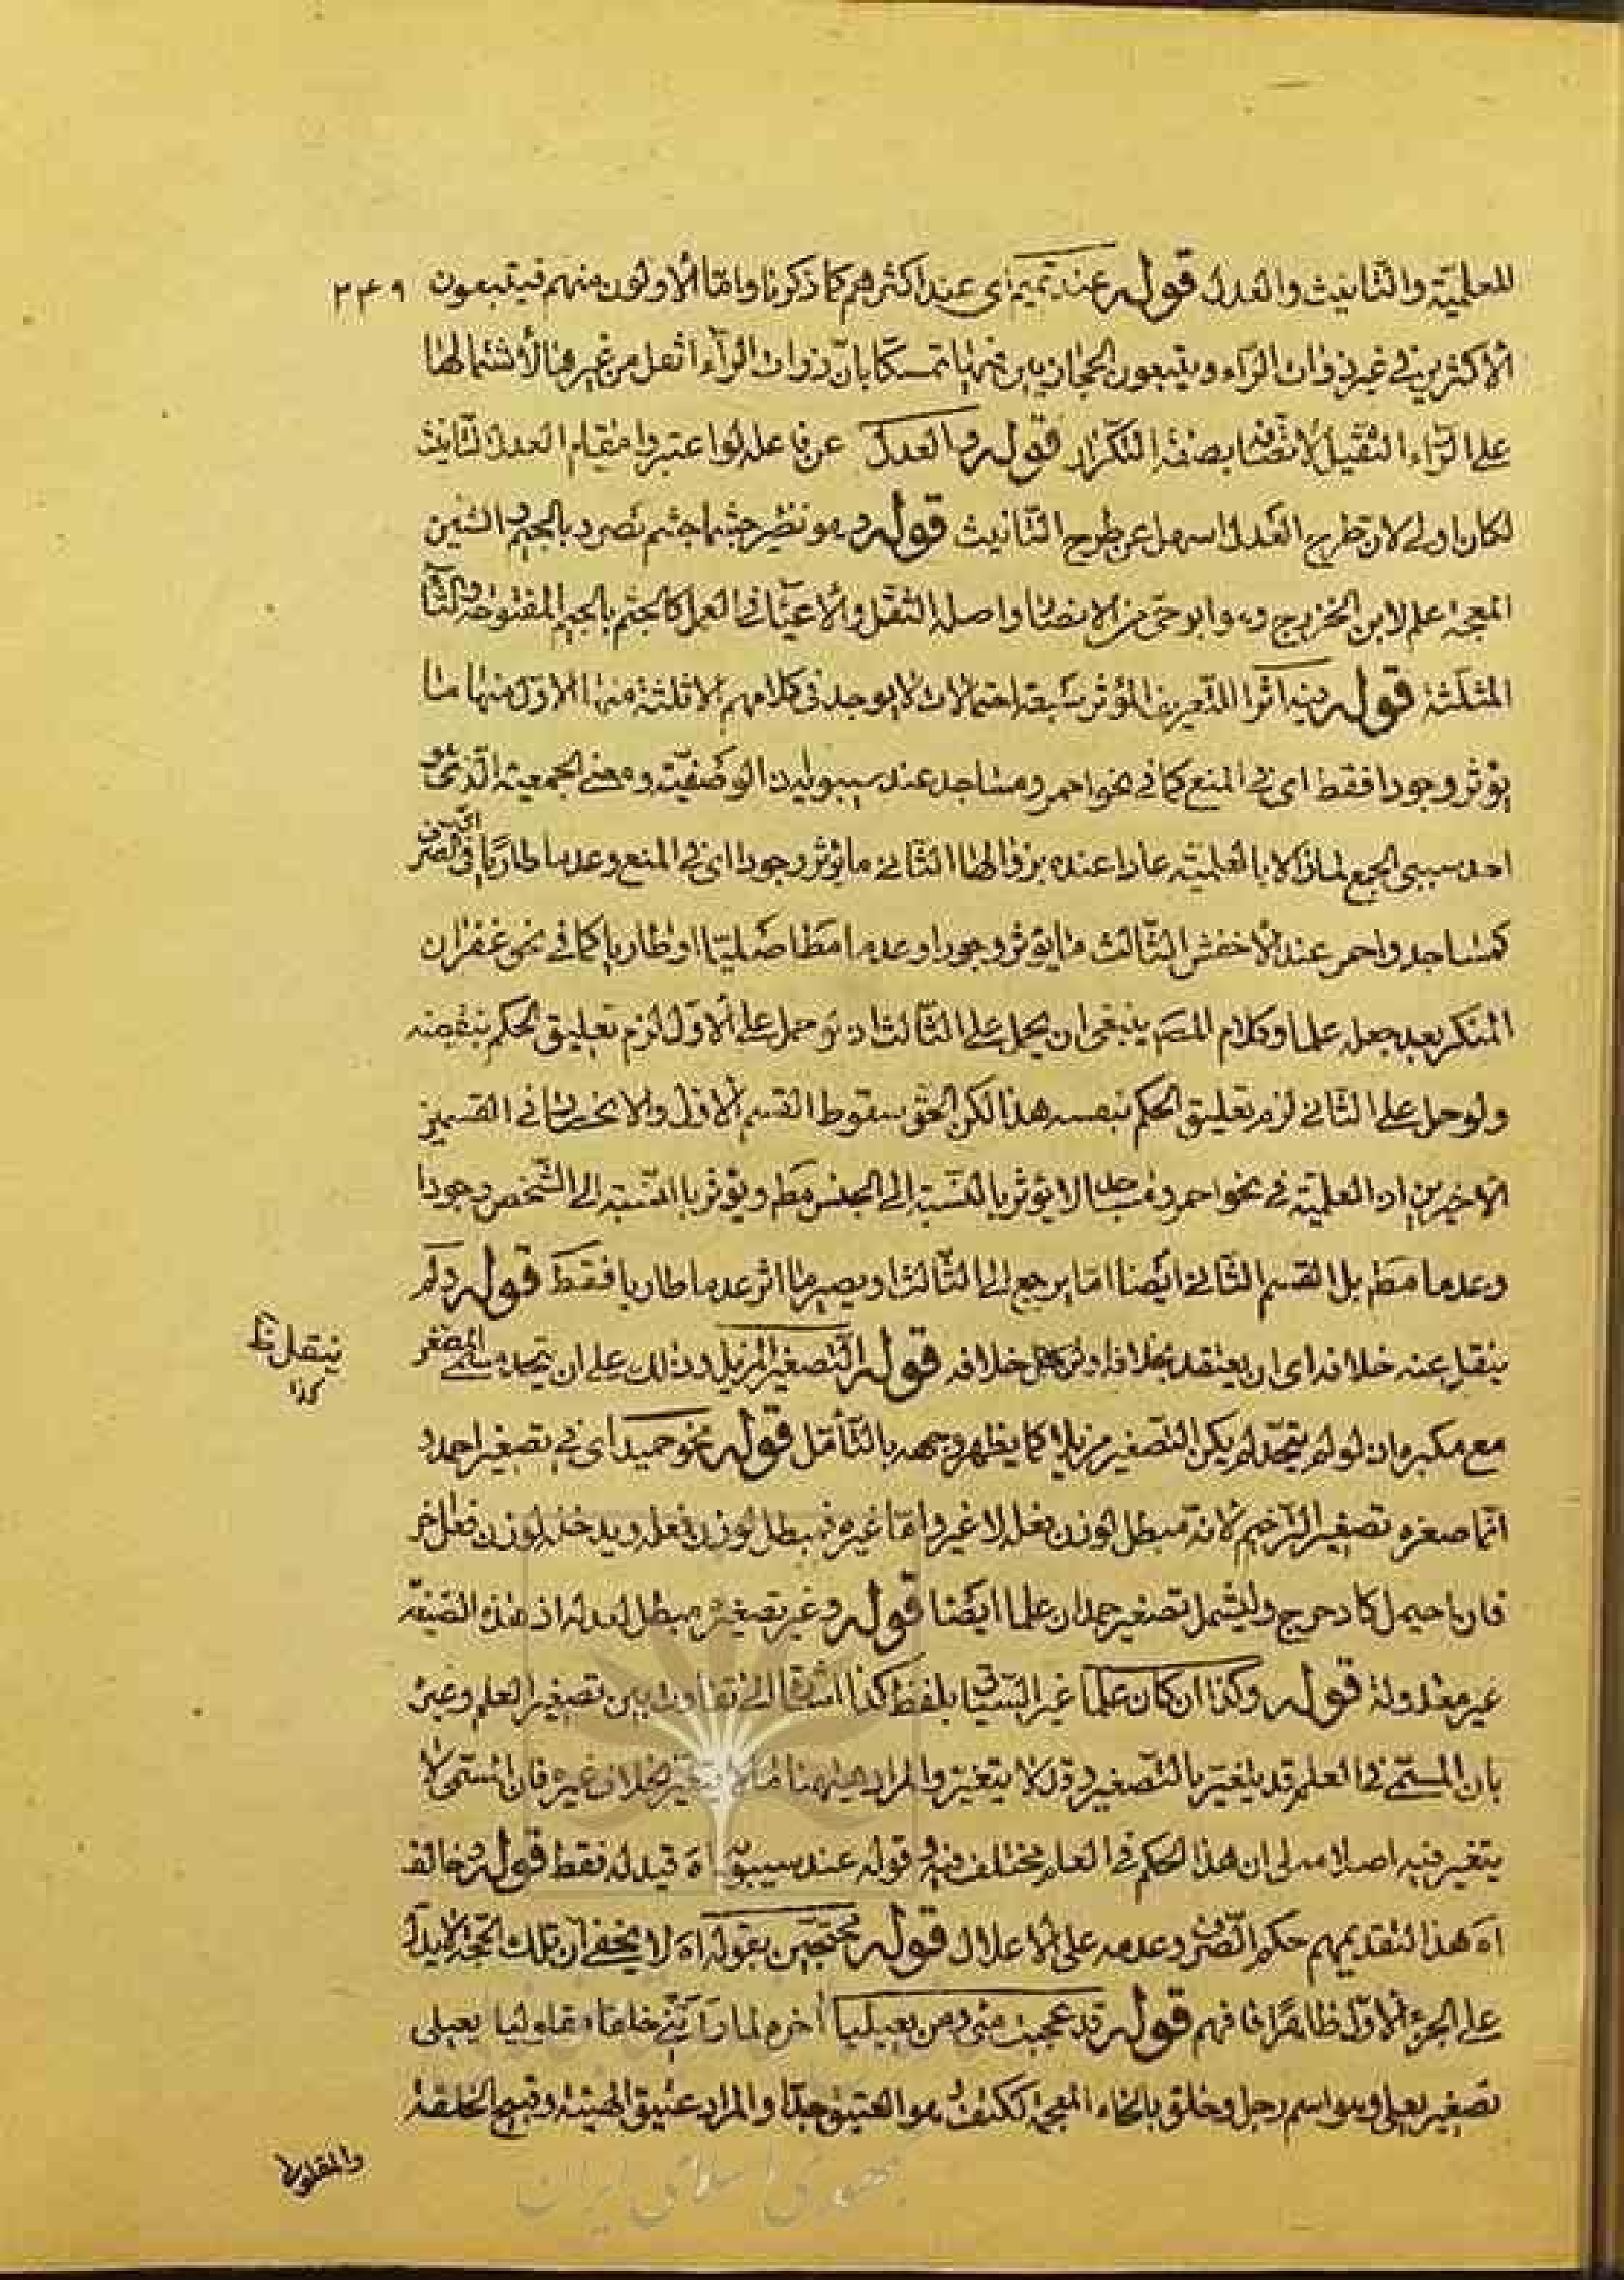 للعلمیّة والتّانیث والعدل قوله عند تمیم ای عند اکثرهم کما ذکرنا وامّا الاولون منهم فیتبعون ۲۴۹
الاکثرین فی غیر ذوات الرّاء ویتبعون الحجازیین فیها تمسکا بانّ ذوات الرّاء اثقل من غیرها لاشتمالها
علی الرّاء الثقیل لاتّصافها بصفة التکرار قوله والعدل عن فاعله لو اعتبروا مقام العدل التّانیث
لکان اولی لان طرح العدل اسهل عن طرح التّانیث قوله وهو نظیر جشما جشم کصرد بالجیم والشین
المعجمة علم لابن الخزرج وابو حیّ من الانصار واصله الثقل والاعیا فی العمل کالجثم بالجیم المفتوحة والثّا
المثلّثة قوله فیه اثرا للتّعریف المؤثر سبعة احتمالات لا یوجد فی کلامهم الا ثلثة منها الاول منها ما
یؤثر وجودا فقط ای فی المنع کما فی نحو احمر ومساجد عند سیبویه الوصفیّة ومعنی الجمعیة الّذی هو
احد سببی الجمع لما زالا بالعلمیّة عادا عنده بزوالها الثّانی ما یؤثر وجودا ای فی المنع وعدما طاریًا ای فی الصّرف
کمساجد واحمر عند الاخفش الثّالث ما یؤثر وجودا وعدما مط اصلیّا او طاریا کما فی نحو غفران
المنکر بعد جعله علما وکلام المص ینبغی ان یحمل علی الثّالث اذ لو حمل علی الاوّل لزم تعلیق الحکم بنقیضه
ولو حمل علی الثّانی لزم تعلیق الحکم بنفسه هذا لکن الحق سقوط القسم الاوّل والانحصار فی القسمین
الاخیرین اذ العلمیّة فی نحو احمر ومساجد لا یؤثر بالنّسبة الی الجنس مط ویؤثر بالنّسبة الی الشّخص وجودا
وعدما مط بل القسم الثّانی ایضا امّا یرجع الی الثّالث او یصیر ما اثر عدما طاریا فقط قوله ولم
ینقل عنه خلافه ای ان یعتقد بخلافه او لم یکن خلافه قوله التّصغیر المزیل وذلک علی ان یتّحد مسمّی المصغّر
ینقل ظ
کذا
مع مکبره اذ لو لم یتّحد لم یکن التّصغیر مزیلا کما یظهر وجهه بالتّأمّل قوله نحو حمید ای فی تصغیر احمد و
انّما صغره تصغیر التّرخیم لانّه مبطل لوزن فعله لا غیر وامّا غیره فمبطل لوزن فعله ویدخله لوزن فعل اخر
فان احیمل کادحرج ولیشمل تصغیر حمدان علما ایضا قوله وغیر تصغیر مبطل لعدله اذ هذه الصّیغة
غیر معدولة قوله وکذا ان کان علما غیر السّیاق بلفظ کذا اشارة الی تفاوت بین تصغیر العلم وغیره
بان المسمّی فی العلم قد یتغیّر بالتّصغیر وقد لا یتغیّر والمراد هیهنا ما لا یتغیّر بخلاف غیره فان المسمّی لا
یتغیر فیه اصلا مع ان هذا الحکم فی العلم مختلف فیه قوله عند سیبویه اه قید له فقط قوله وخالف
اه هذا التقدیمهم حکم الصّرف وعدمه علی الاعلال قوله محتجّین بقوله اه لا یخفی ان تلک الحجّة لا یدل
علی الجزء الاوّل ظاهرا فافهم قوله قد عجبت منّی ومن یعیلیا اخره لما رأتنی خلقا مقلولیا یعیلی
تصغیر یعلی وهو اسم رجل وخلق بالخاء المعجمة ککتف هو العتیق جدّا والمراد عتیق الهیئة وقبیح الخلقة
والمقلولی